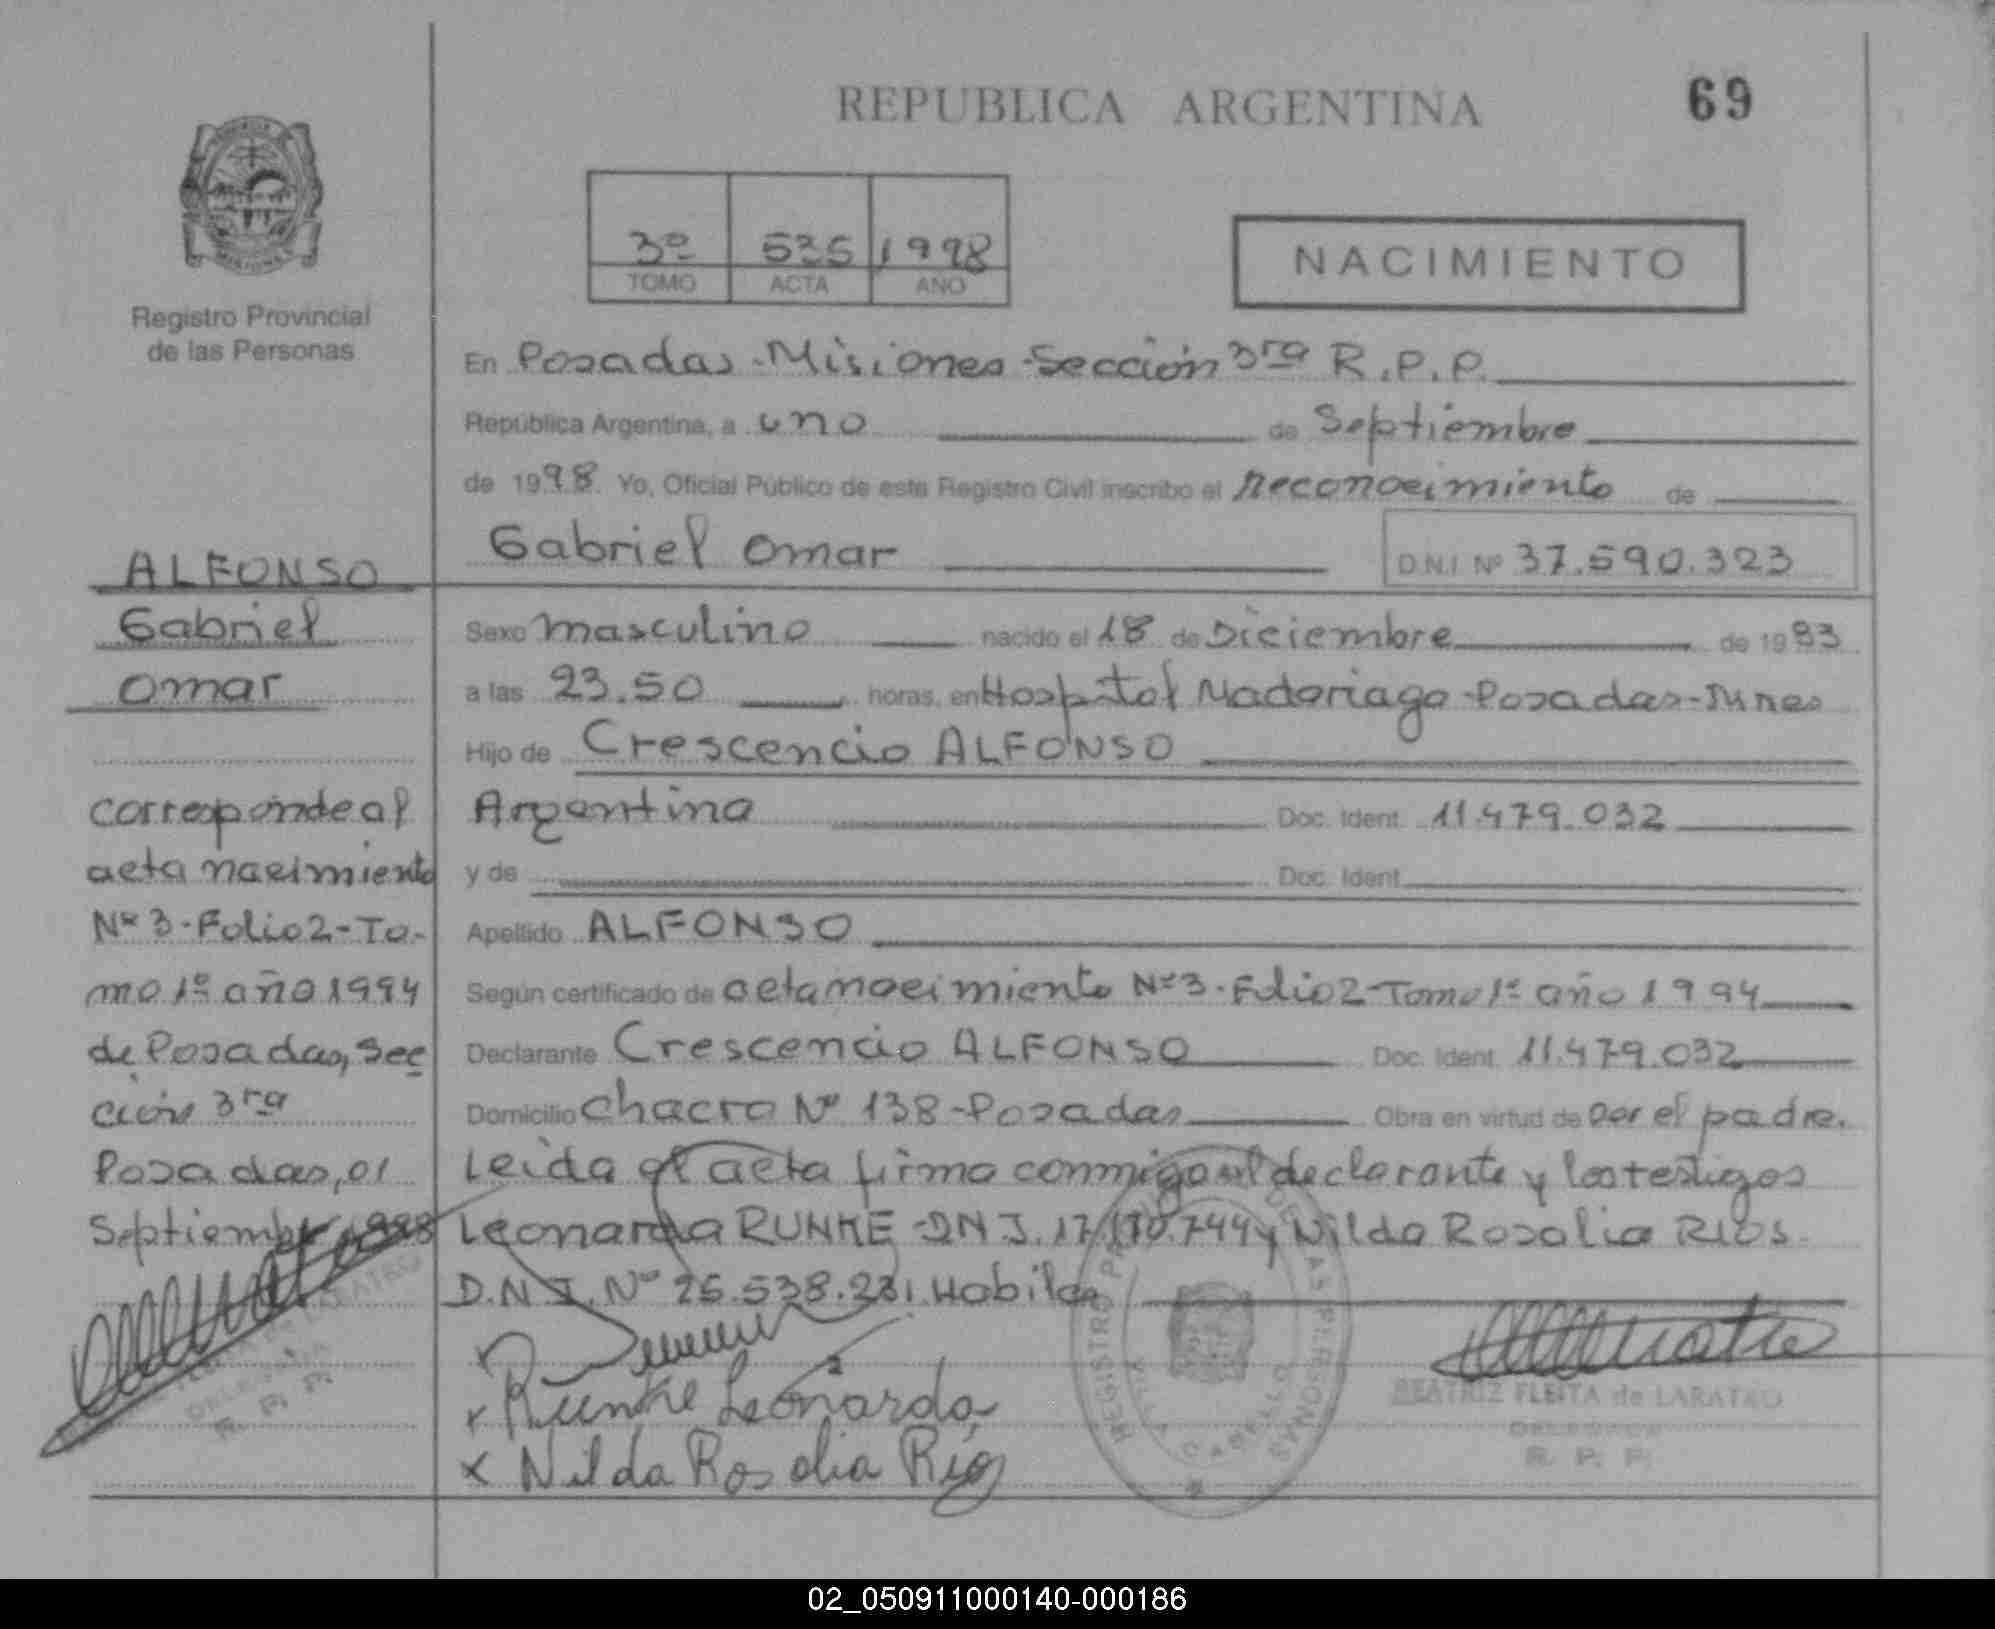 REPUBLICA ARGENTINA
69
3º 535 1998
TOMO ACTA AÑO
NACIMIENTO
Registro Provincial
de las Personas
En Posadas-Misiones-Sección 3ra R.P.P.
República Argentina, a uno de Septiembre
de 1998. Yo, Oficial Público de este Registro Civil inscribo el reconocimiento de
Gabriel Omar D.N.I. Nº 37.590.323
Sexo masculino nacido el 18 de Diciembre de 1993
a las 23.50 horas, en Hospital Madariaga-Posadas-Mnes
Hijo de Crescencio ALFONSO
Argentina Doc. Ident. 11.479.032
y de Doc. Ident.
Apellido ALFONSO
Según certificado de acta nacimiento Nº3-Folio 2-Tomo 1º año 1994
Declarante Crescencio ALFONSO Doc. Ident. 11.479.032
Domicilio Chacra Nº 138-Posadas Obra en virtud de ser el padre.
Leída el acta firma conmigo el declarante y los testigos
Leonarda RUNKE-DNI. 17.170.744 y Nilda Rosalia RIOS.
D.N.I. Nº 26.538.231. Habiles
Runke Leonarda
x Nilda Rosalia Rios
ALFONSO
Gabriel
Omar
corresponde al
acta nacimiento
Nº 3-Folio 2-To-
mo 1º año 1994
de Posadas, Sec
ción 3ra
Posadas, 01
Septiembre 1998
REGISTRO PROVINCIAL DE LAS PERSONAS
VILLA CABELLO
BEATRIZ FLEITA de LARATRO
DELEGADA
R. P. P.
DELEGADA
R. P. P.
02_050911000140-000186